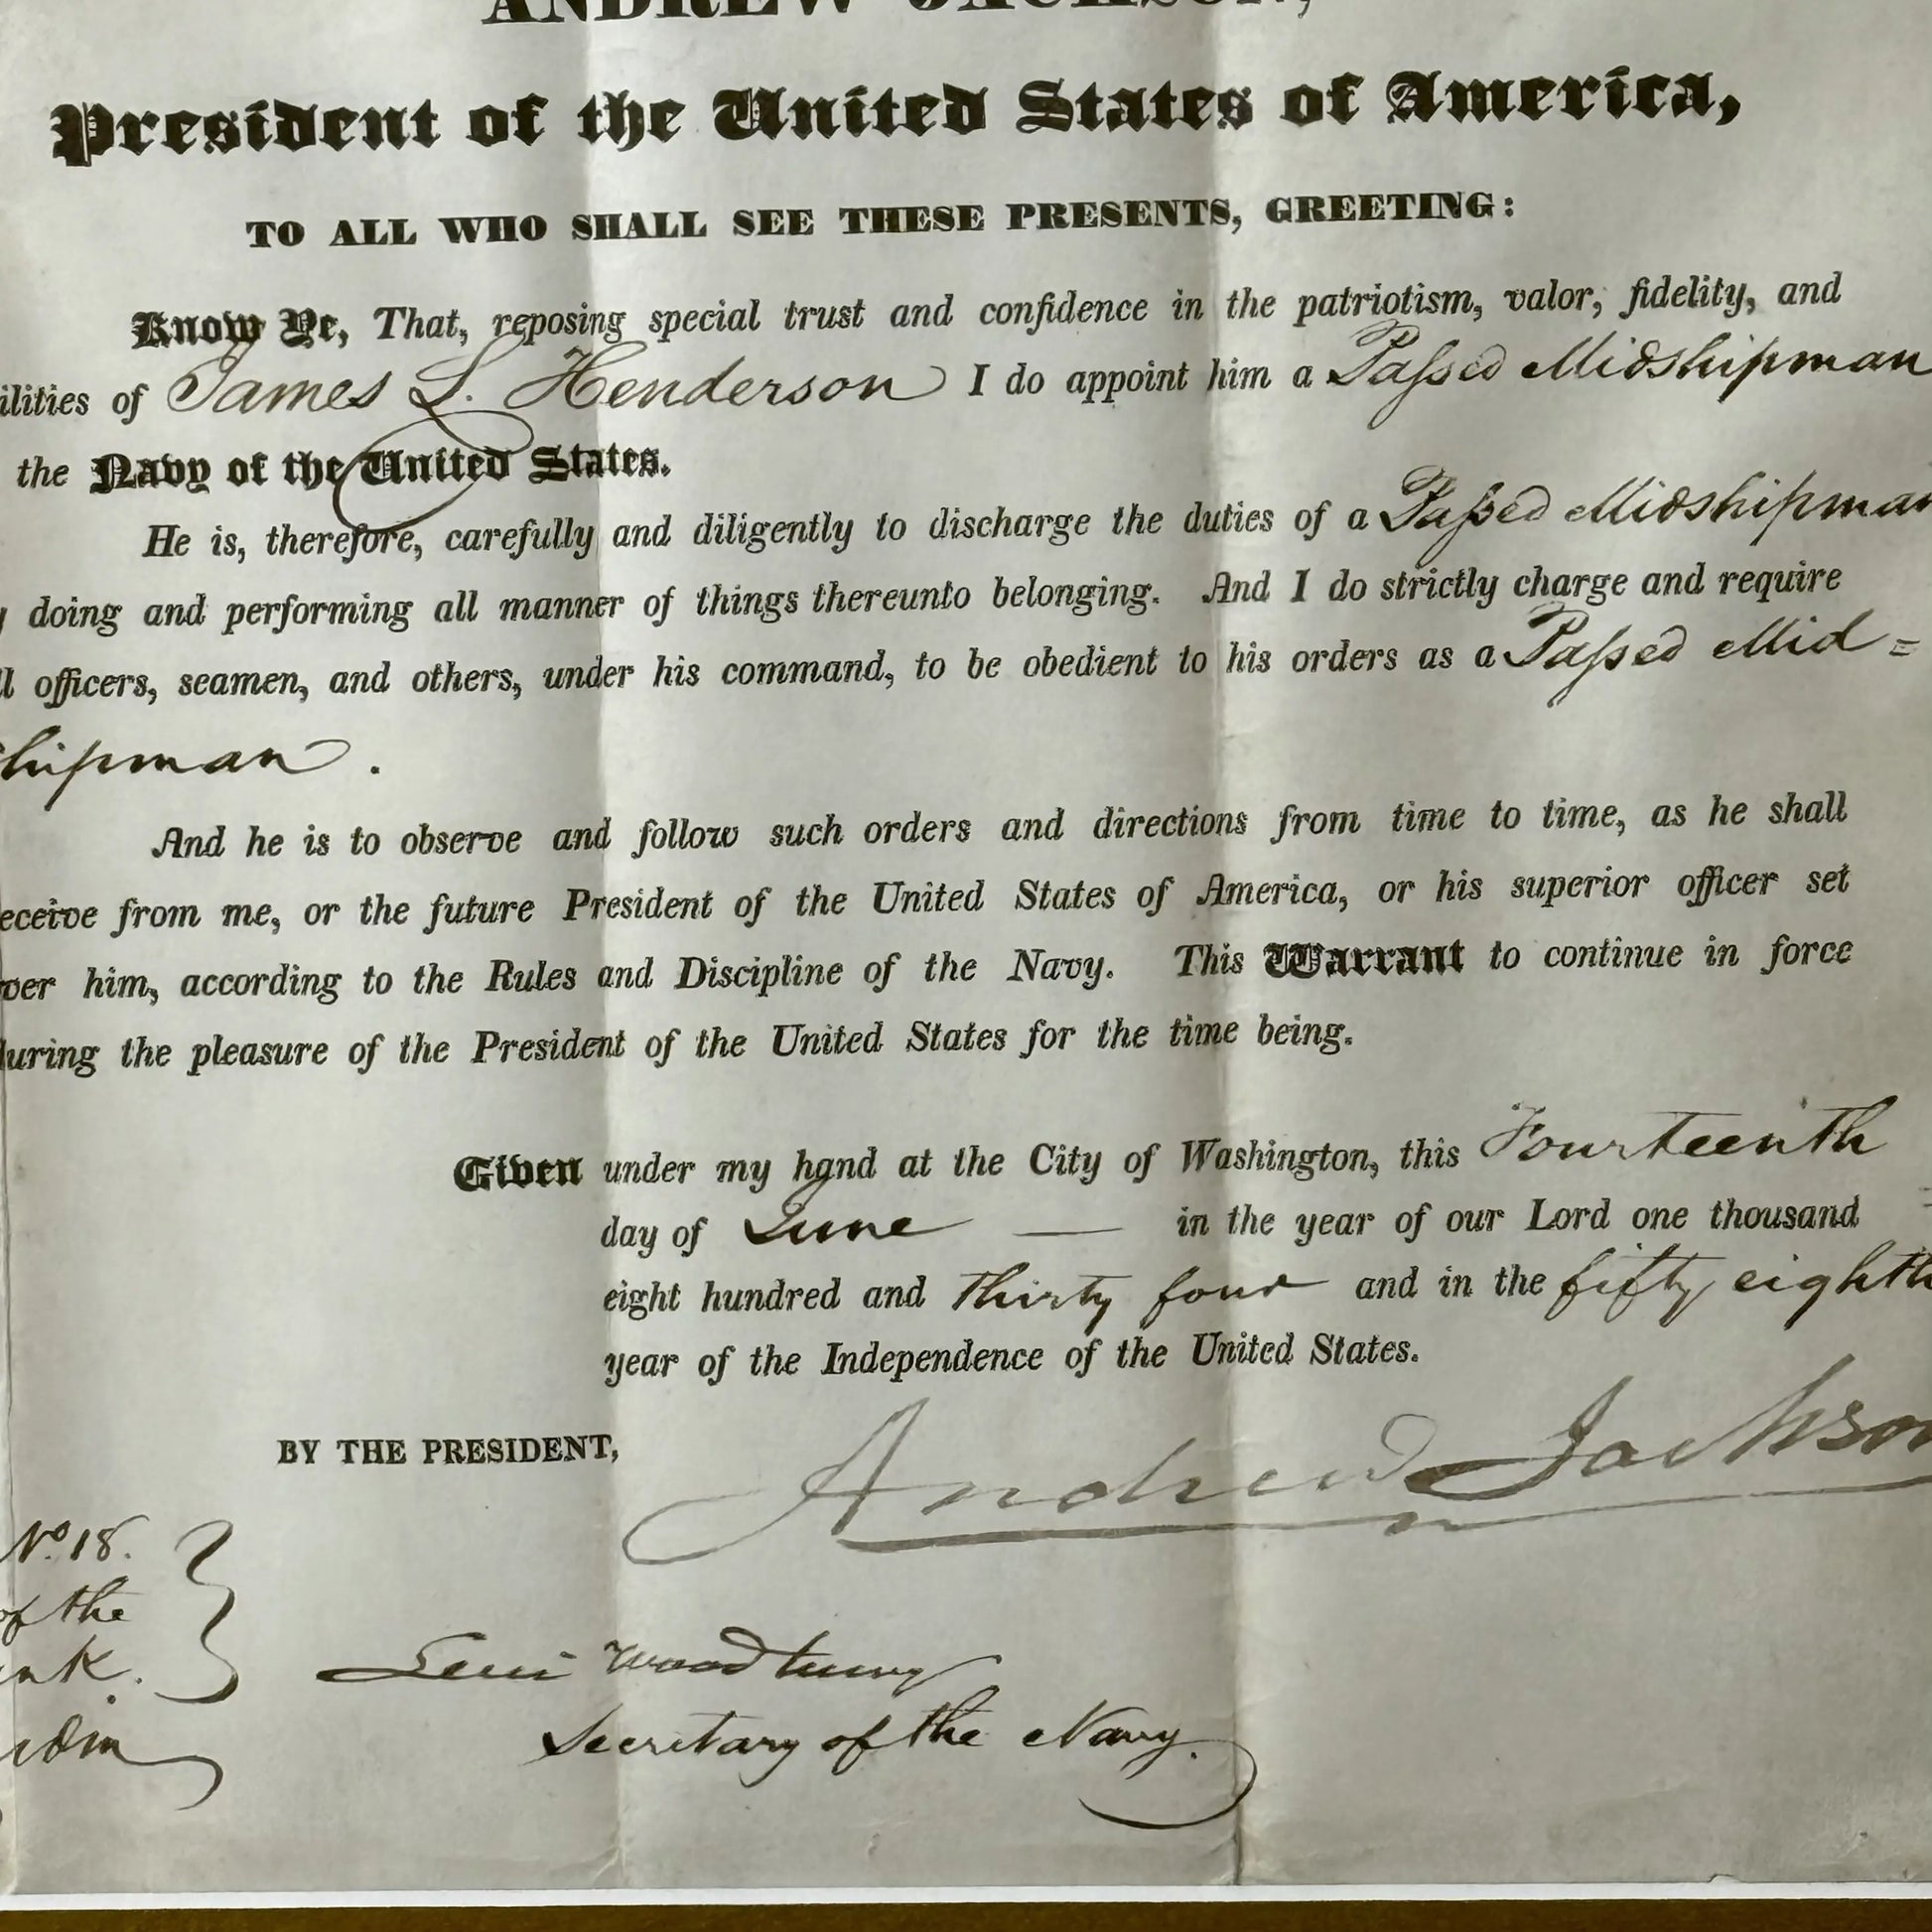 ANDREW JACKSON,
President of the United States of America,
TO ALL WHO SHALL SEE THESE PRESENTS, GREETING:
Know Ye, That, reposing special trust and confidence in the patriotism, valor, fidelity, and
ilities of James L. Henderson I do appoint him a Passed Midshipman
the Navy of the United States.
He is, therefore, carefully and diligently to discharge the duties of a Passed Midshipman
y doing and performing all manner of things thereunto belonging. And I do strictly charge and require
ll officers, seamen, and others, under his command, to be obedient to his orders as a Passed Mid=
shipman.
And he is to observe and follow such orders and directions from time to time, as he shall
eceive from me, or the future President of the United States of America, or his superior officer set
ver him, according to the Rules and Discipline of the Navy. This Warrant to continue in force
during the pleasure of the President of the United States for the time being.
Given under my hand at the City of Washington, this Fourteenth
day of June — in the year of our Lord one thousand
eight hundred and thirty four and in the fifty eighth
year of the Independence of the United States.
BY THE PRESIDENT,
Andrew Jackson
No. 18.
of the
Levi Woodbury
Secretary of the Navy.